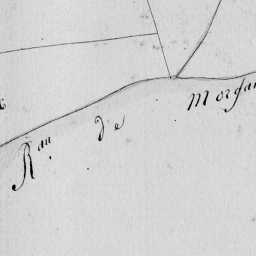 R.au de Morgan